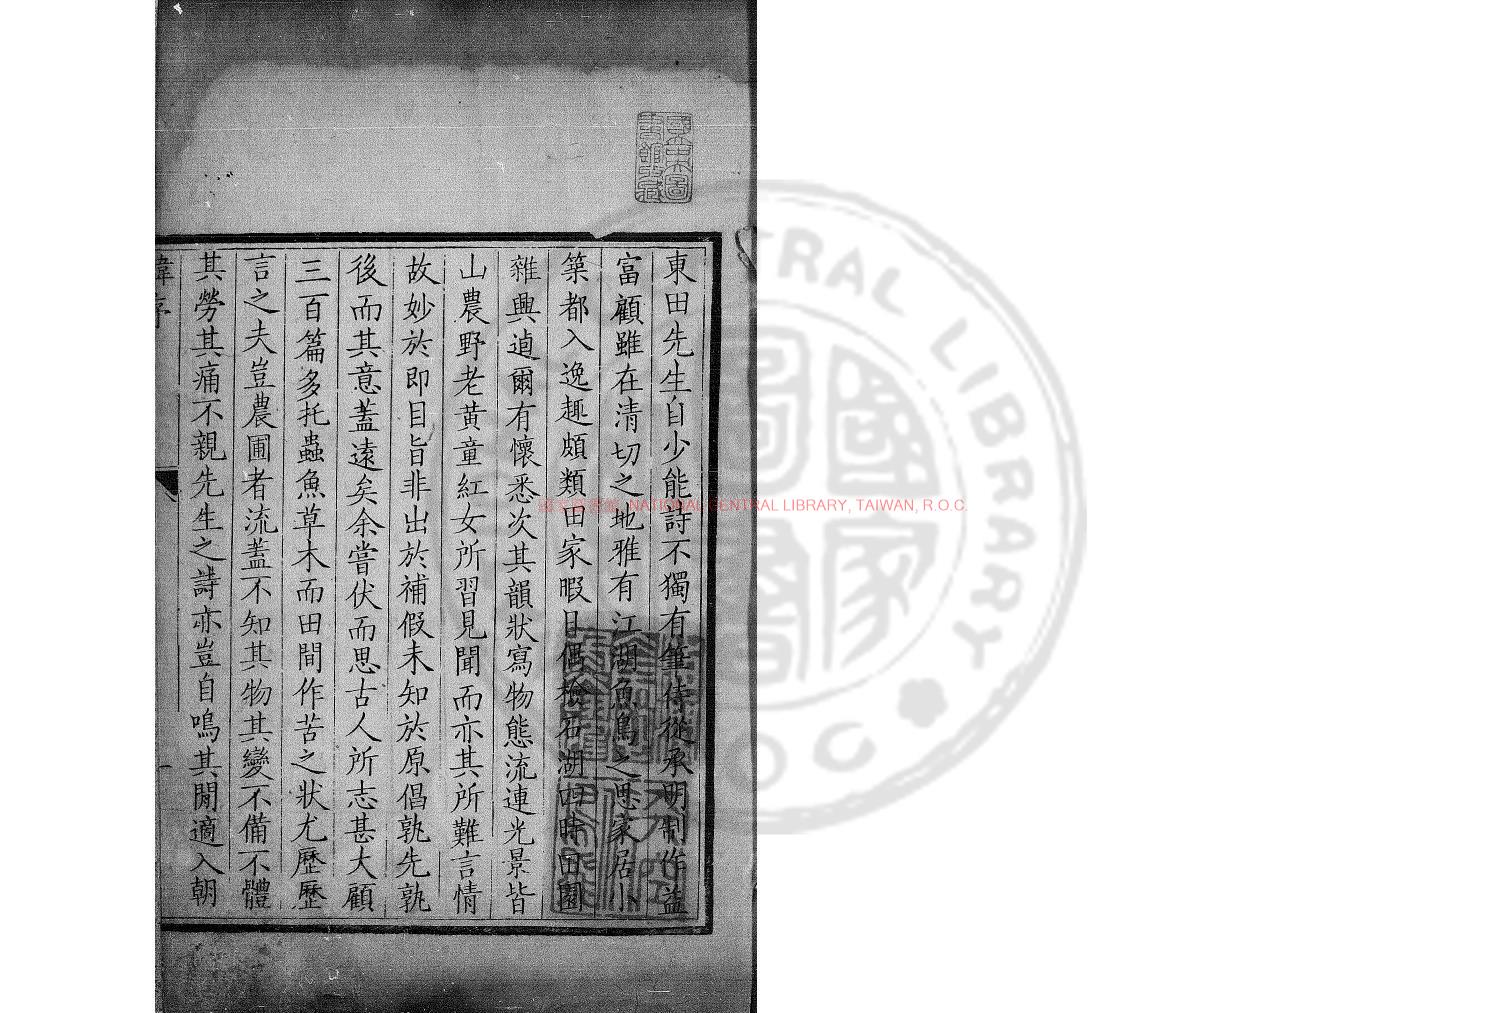 東田先生自少能詩不獨有筆侍從承明制作益
富顧雖在清切之地雅有江湖魚鳥之思家居小
築都入逸趣頗類田家暇日偶檢石湖四時田園
雜興逌爾有懷悉次其韻狀寫物態流連光景皆
山農野老黃童紅女所習見聞而亦其所難言情
故妙於即目旨非出於補假未知於原倡孰先孰
後而其意蓋遠矣余嘗伏而思古人所志甚大顧
三百篇多托蟲魚草木而田間作苦之狀尤歷歷
言之夫豈農圃者流蓋不知其物其變不備不體
其勞其痛不親先生之詩亦豈自鳴其閒適入朝
序
國立中央圖書館收藏
國家圖書館, NATIONAL CENTRAL LIBRARY, TAIWAN, R.O.C.
CENTRAL LIBRARY
ROC